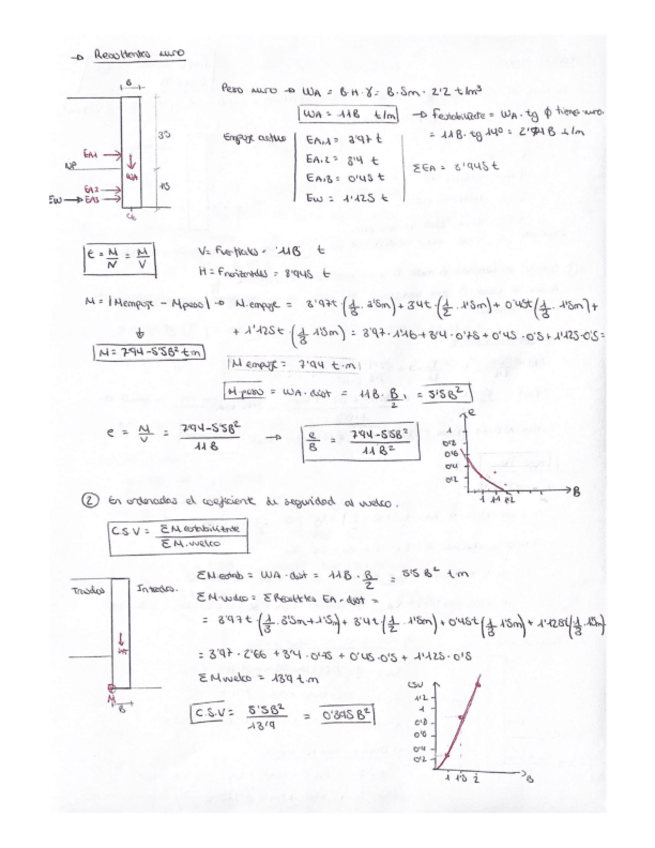 → Resultantes muro
B
Peso muro → WA = B·H·γ = B·5m·2'2 t/m³
WA = 11B t/m
→ Festabilizante = WA·tg ϕ
= 11B·tg14º =
3'5
1'5
EA1
NP
WA
EA2
EW → EA3
Empuje activo
EA,1 = 3'97 t
EA,2 = 3'4 t
EA,3 = 0'45 t
EW = 1'125 t
ΣEA = 8'945 t
e = M/N = M/V
V = = 11B t
H = Fhorizontales = 8'945 t
M = |Mempuje - Mpeso| → M.empuje = 3'97t·(1/3·3'5m)+3'4t·(1/2·1'5m)+0'45t(1/3·1'5m)+
+ 1'125t·(1/3·1'5m) = 3'97·1'16+3'4·0'75+0'45·0'5+1'125·0'5=
M = 7'94-5'5B² t·m
M empuje = 7'94 t·m
M peso = WA·dist = 11B·B/2 = 5'5B²
e = M/V = 7'94-5'5B²/11B → e/B = 7'94-5'5B²/11B²
e
1
0'8
0'6
0'4
0'2
B
② En ordenadas el coeficiente de seguridad al vuelco.
C.S.V = ΣM estabilizante/ΣM.vuelco
Trasdos
Intrados.
WA
M
B
ΣM estab = WA·dist = 11B·B/2 = 5'5B² t·m
ΣM.vuelco = EA·dist =
= 3'97t·(1/3·3'5m+1'5m)+3'4t(1/2·1'5m)+0'45t(1/3·1'5m)+1'125t(1/3·1'5m)
= 3'97·2'66+3'4·0'75+0'45·0'5+1'125·0'5
ΣM vuelco = 13'9 t·m
C.S.V = 5'5B²/13'9 = 0'395B²
CSV
1'2
1
0'8
0'6
0'4
0'2
1 1'5 2
B